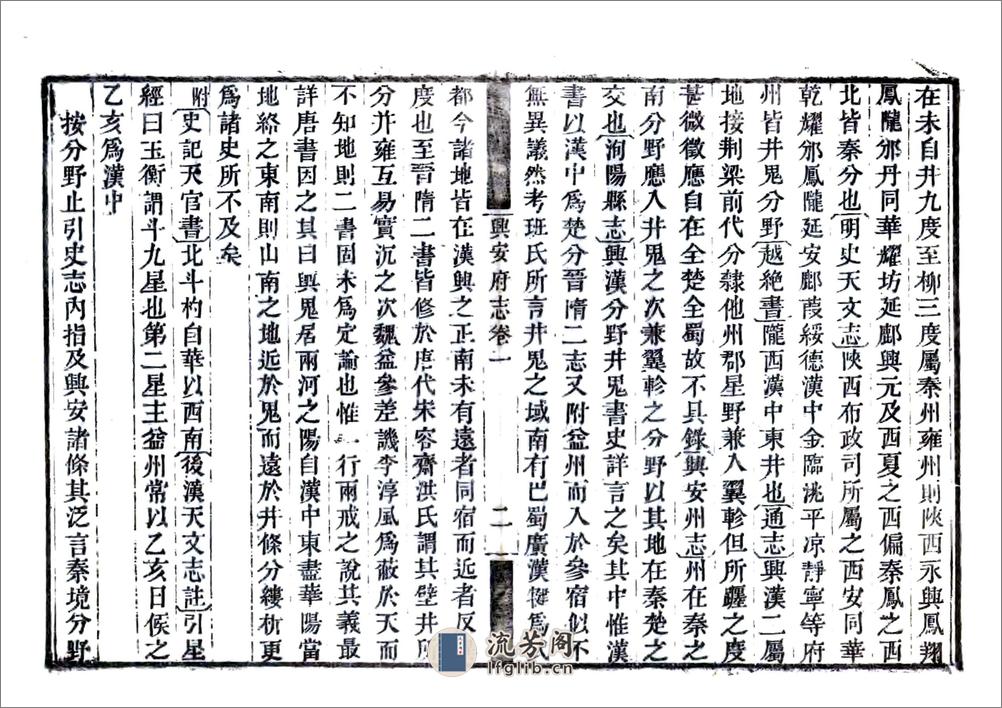 在未自井九度至柳三度屬秦州雍州則陝西永興鳳翔
鳳隴邠丹同華耀坊延鄜興元及西夏之西偏秦鳳之西
北皆秦分也明史天文志陝西布政司所屬之西安同華
乾耀邠鳳隴延安鄜葭綏德漢中金臨洮平凉靜寧等府
州皆井鬼分野越絶書隴西漢中東井也通志興漢二屬
地接荆梁前代分隸他州郡星野兼入翼軫但所躔之度
甚微徵應自在全楚全蜀故不具錄興安州志州在秦之
南分野應入井鬼之次兼翼軫之分野以其地在秦楚之
交也洵陽縣志興漢分野井鬼書史詳言之矣其中惟漢
書以漢中爲楚分晉隋二志又附益州而入於參宿似不
無異議然考班氏所言井鬼之域南有巴蜀廣漢犍爲
興安府志卷一
二
都今諸地皆在漢興之正南未有遠者同宿而近者反
度也至晉隋二書皆修於唐代宋容齋洪氏謂其壁井所
分并雍互易實沉之次魏益參差譏李淳風爲蔽於天而
不知地則二書固未爲定論也惟一行兩戒之說其義最
詳唐書因之其曰輿鬼居兩河之陽自漢中東盡華陽當
地絡之東南則山南之地近於鬼而遠於井條分縷析更
爲諸史所不及矣
附史記天官書北斗杓自華以西南後漢天文志註引星
經曰玉衡謂斗九星也第二星主益州常以乙亥日候之
乙亥爲漢中
按分野止引史志內指及興安諸條其泛言秦境分野
流芳阁
lfglib.cn